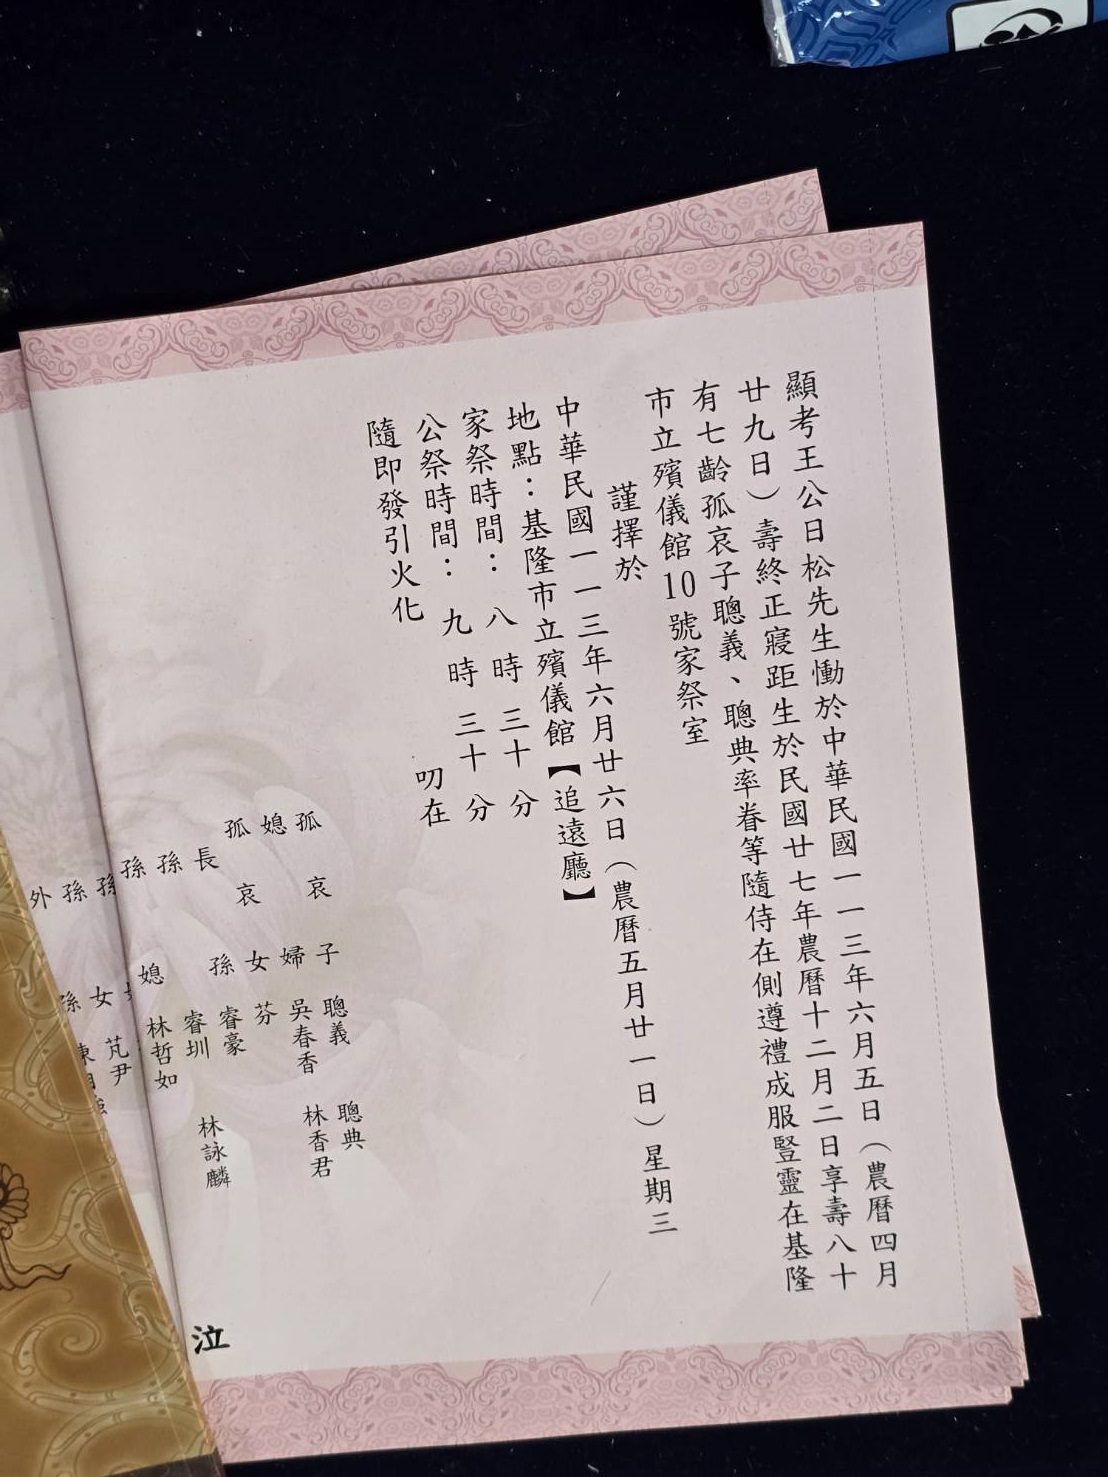 顯考王公日松先生慟於中華民國一一三年六月五日（農曆四月
廿九日）壽終正寢距生於民國廿七年農曆十二月二日享壽八十
有七齡孤哀子聰義、聰典率眷等隨侍在側遵禮成服豎靈在基隆
市立殯儀館10號家祭室
謹擇於
中華民國一一三年六月廿六日（農曆五月廿一日）星期三
地點：基隆市立殯儀館【追遠廳】
家祭時間：八時三十分
公祭時間：九時三十分
隨即發引火化
叨在
孤哀子 聰義 聰典
媳婦 吳春香 林香君
孤哀女 芬
長孫 睿豪
孫 睿圳 林詠麟
孫媳 林哲如
孫女 芃尹
外孫
泣